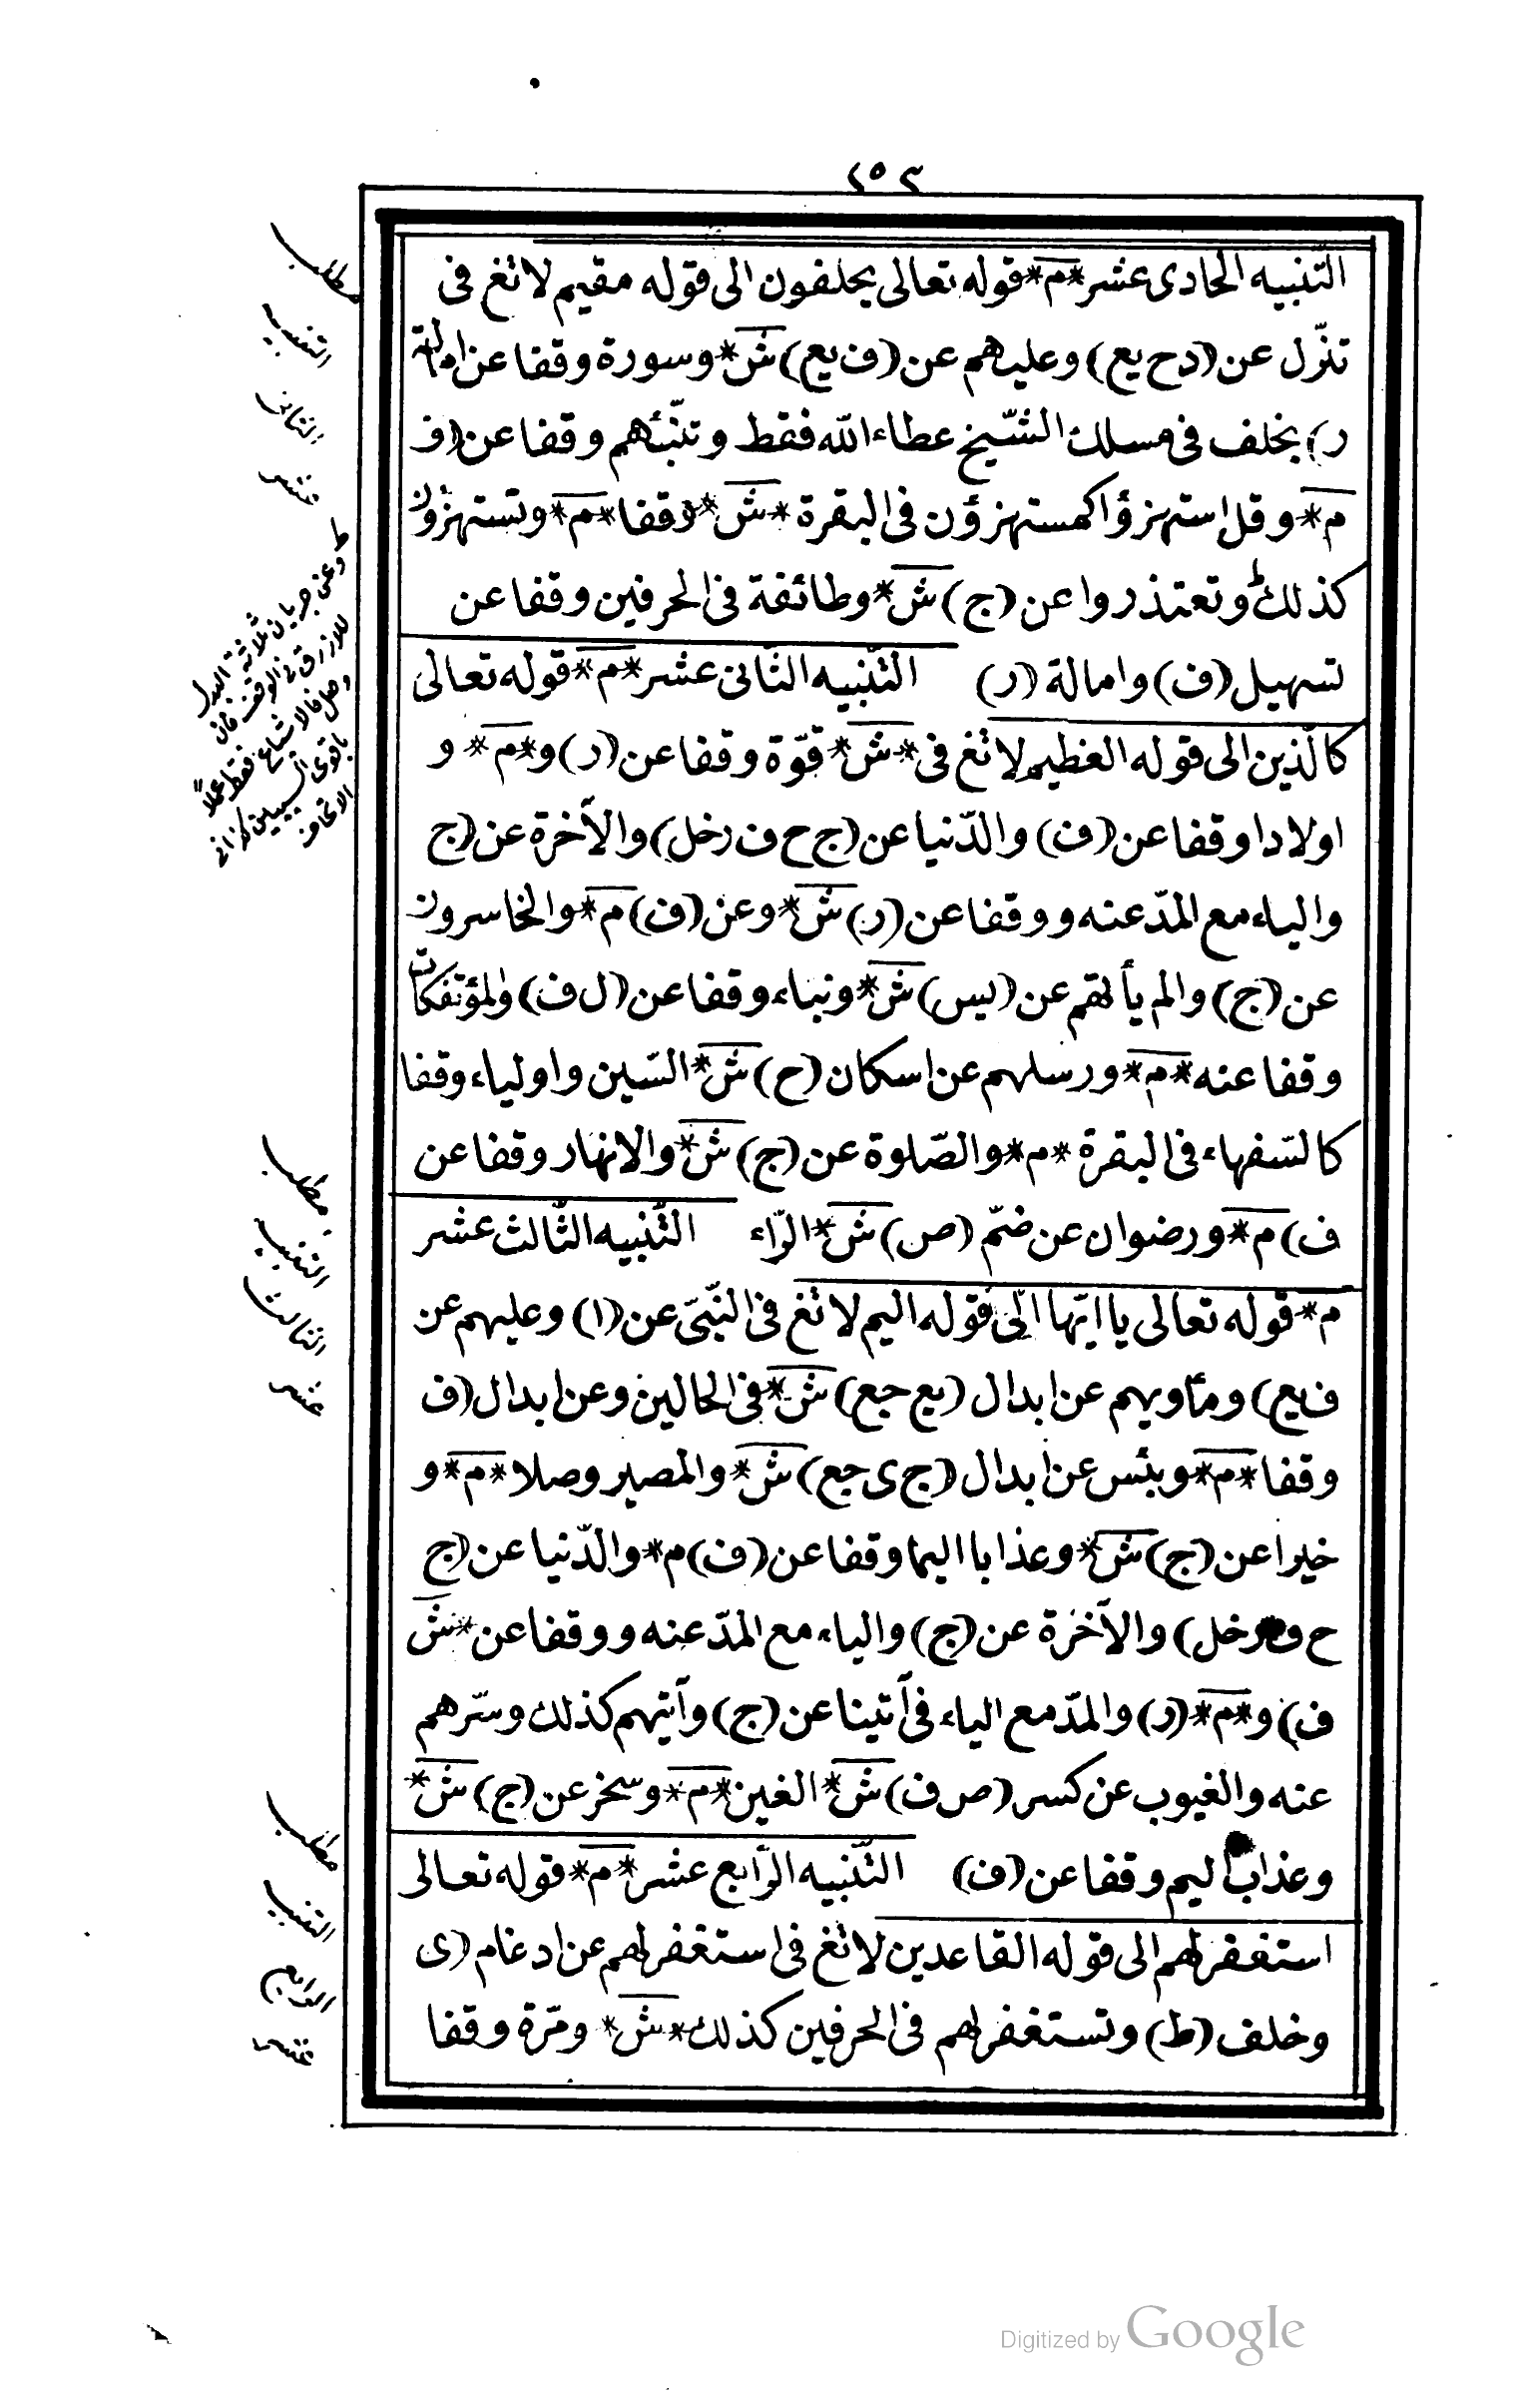 ٢٥٢
التّنبيه الحادى عشر *م* قوله تعالى يحلفون الى قوله مقيم لا تغ فى
تنزّل عن (دح يع) وعليهم عن (ف يع) ش* وسورة وقفا عن امالة
ر) بخلف فى مسلك الشّيخ عطاء الله فقط وتنّبئهم وقفا عن (ف
م* وقل استهزؤا كمستهزؤن فى البقرة *ش* وقفا *م* وتستهزؤن
كذلك ط وتعتذروا عن (ج) ش* وطائفة فى الحرفين وقفا عن
تسهيل (ف) وامالة (ر) التّنبيه الثّانى عشر *م* قوله تعالى
كالّذين الى قوله العظيم لا تغ فى *ش* قوّة وقفا عن (ر) و*م* و
اولادا وقفا عن (ف) والدّنيا عن (ج ح ف رخل) والآخرة عن (ج
والياء مع المدّ عنه ووقفا عن (ر) ش* وعن (ف) م* والخاسرون
عن (ج) والم يأتهم عن (يس) ش* ونباء وقفا عن (ل ف) والمؤتفكات
وقفا عنه *م* ورسلهم عن اسكان (ح) ش* السّين واولياء وقفا
كالسّفهاء فى البقرة *م* والصّلوة عن (ج) ش* والانهار وقفا عن
ف) م* ورضوان عن ضمّ (ص) ش* الرّاء التّنبيه الثّالث عشر
م* قوله تعالى يا ايّها الى قوله اليم لا تغ فى النّبىّ عن (ا) وعليهم عن
ف يع) ومأويهم عن ابدال (يع جع) ش* فى الحالين وعن ابدال (ف
وقفا *م* وبئس عن ابدال (ج ى جع) ش* والمصير وصلا *م* و
خيرا عن (ج) ش* وعذابا اليما وقفا عن (ف) م* والدّنيا عن (ج
ح ف رخل) والآخرة عن (ج) والياء مع المدّ عنه ووقفا عن *ش
ف) و*م* (ر) والمدّ مع الياء فى آتينا عن (ج) وآتيهم كذلك وسرّهم
عنه والغيوب عن كسر (ص ف) ش* الغين *م* وسخر عن (ج) ش*
وعذاب اليم وقفا عن (ف) التّنبيه الرّابع عشر *م* قوله تعالى
استغفر لهم الى قوله القاعدين لا تغ فى استغفر لهم عن ادغام (ى
وخلف (ط) وتستغفر لهم فى الحرفين كذلك *ش* ومرّة وقفا
مطلب
التنبيه
الثانى
عشر
ط وعن جريان ثلاثة البدل
للازرق فى الوقف فان
وصل فالاشباع فقط عملاً
باقوى السببين كما فى
الاتحاف
مطلب
التنبيه
الثالث
عشر
مطلب
التنبيه
الرابع
عشر
Digitized by Google